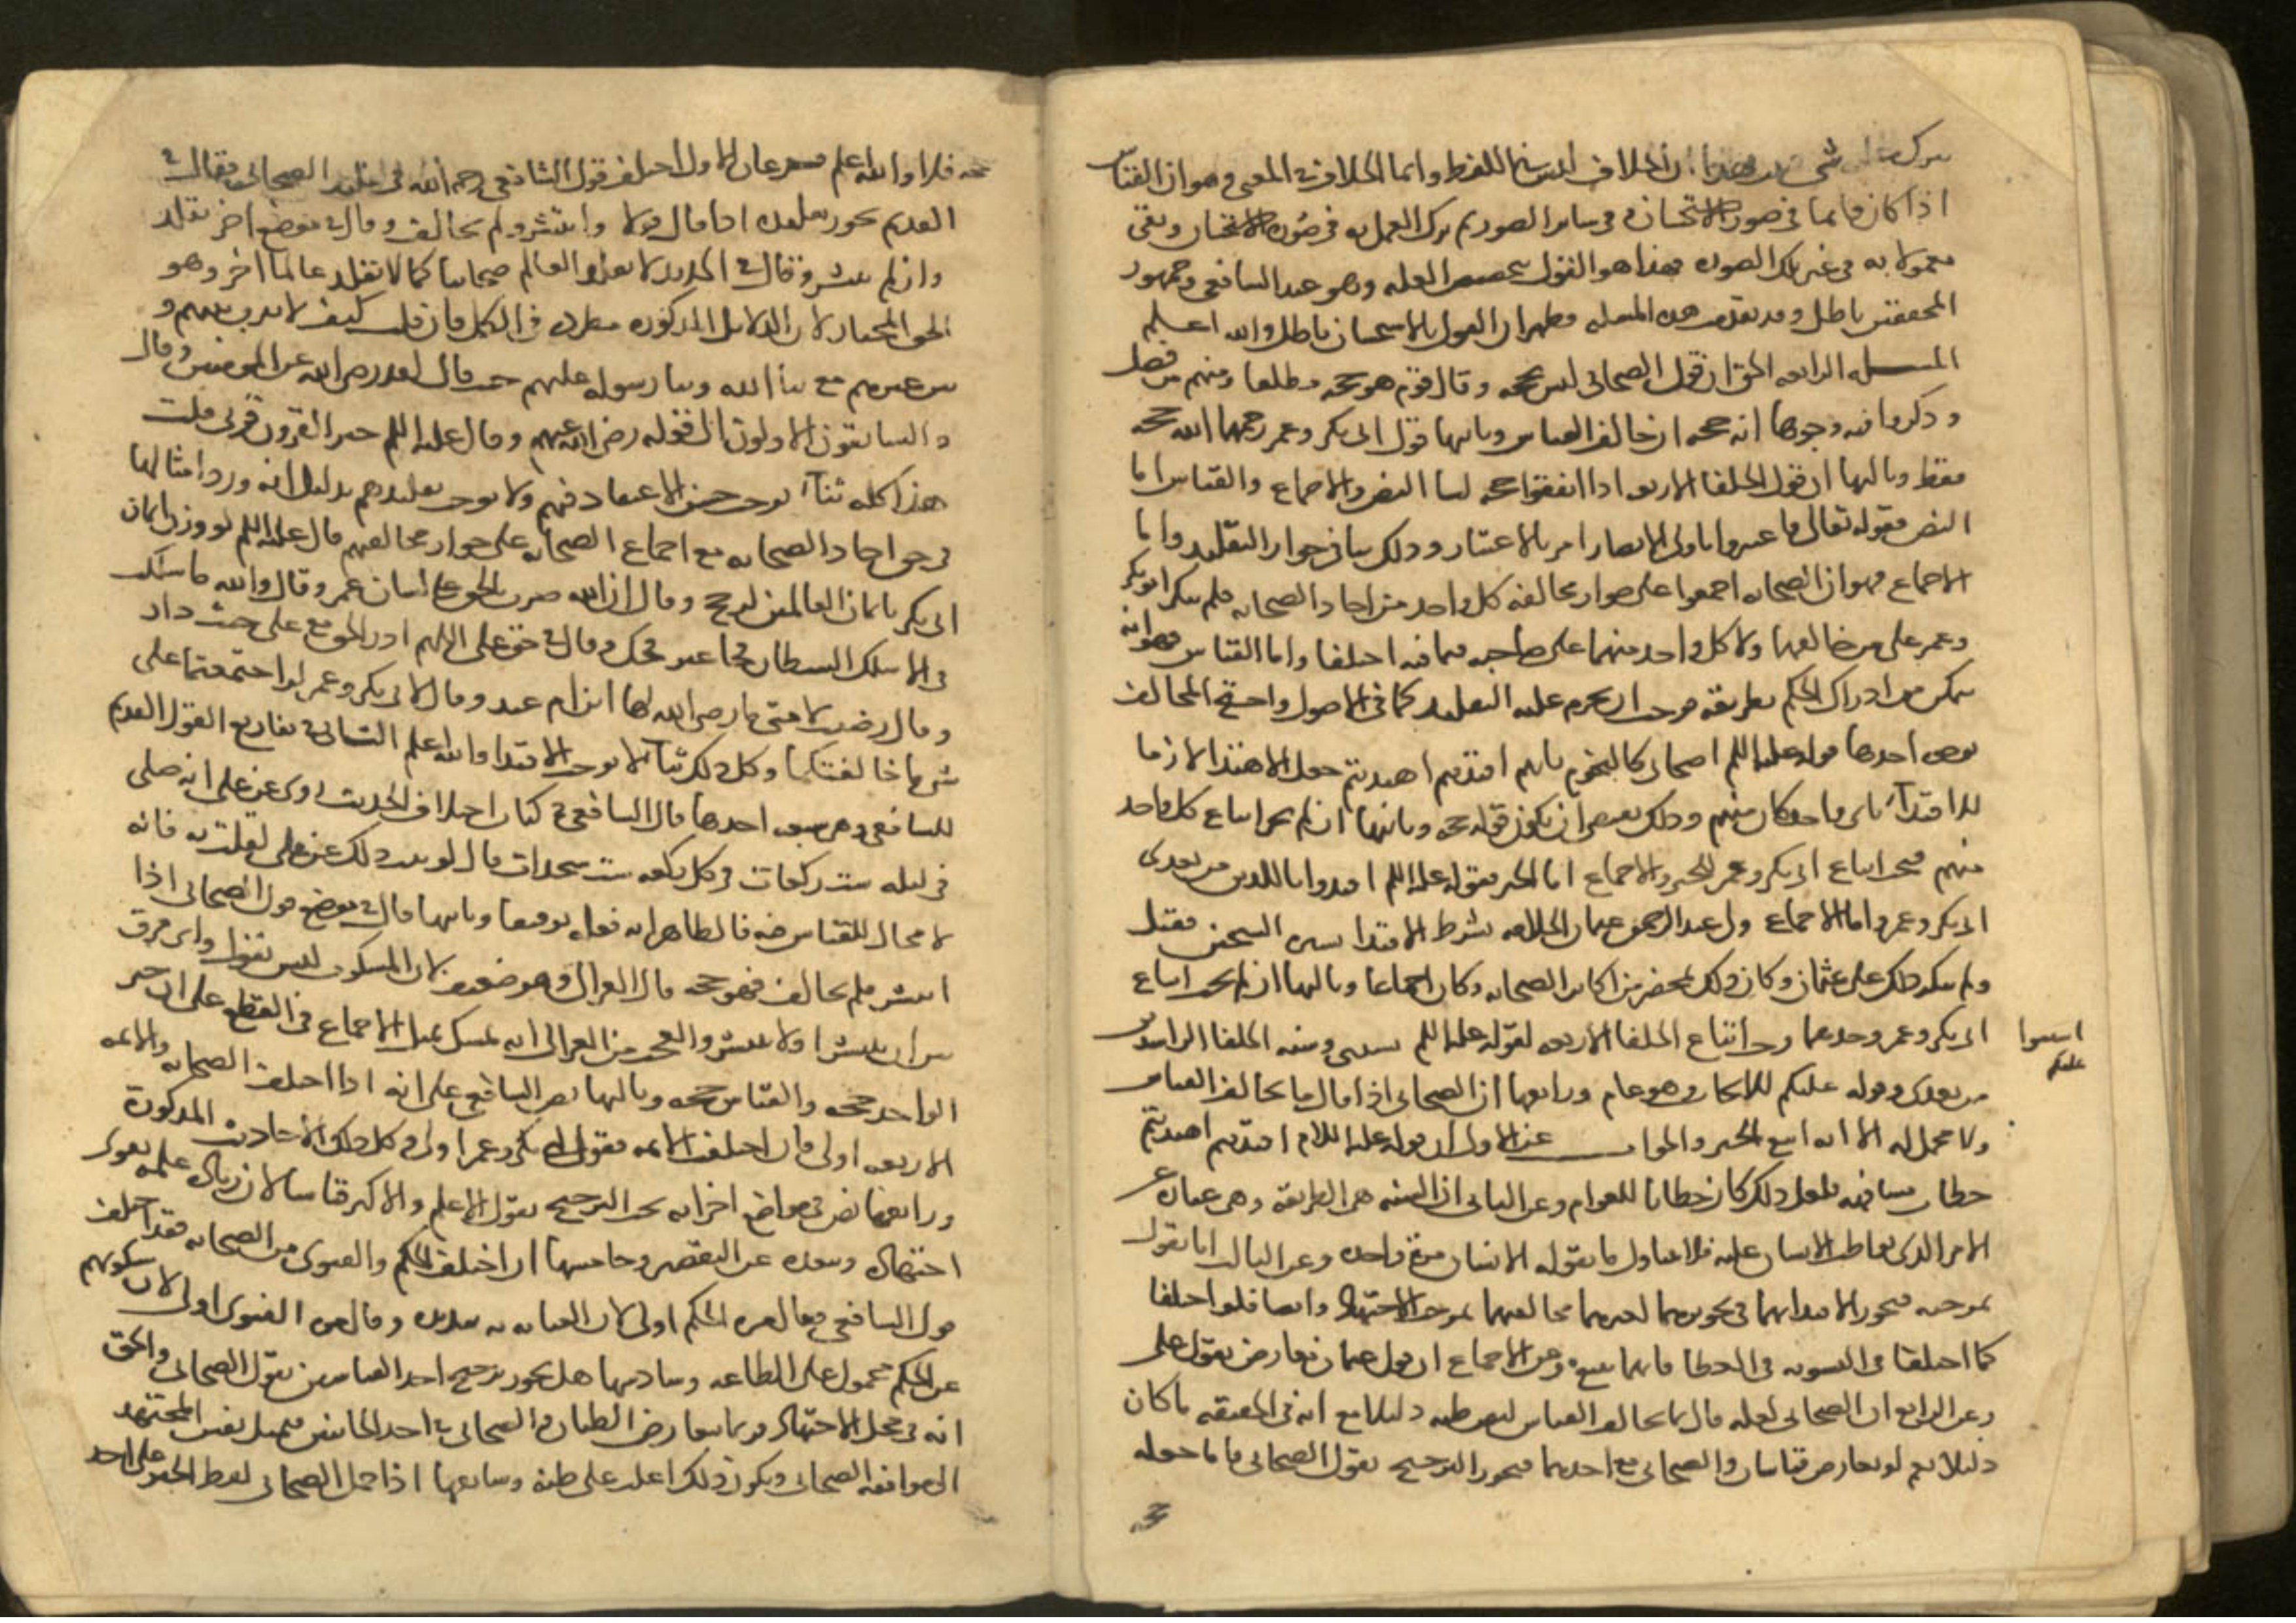 ان الخلاف ليس في اللفظ وانما الخلاف في المعنى وهو ان القياس
اذا كان قائما في صورة الاستحسان وفي سائر الصور ثم ترك العمل به في صورة الاستحسان وبقي
معمولا به في غير تلك الصورة فهذا هو القول بتخصيص العلة وهو عند الشافعي وجمهور
المحققين باطل وقد تقدمت هذه المسئلة فظهر ان القول بالاستحسان باطل والله اعلم
المسئلة الرابعة الحق ان قول الصحابي ليس بحجة وقال قوم هو حجة مطلقا ومنهم من فصل
وذكروا فيه وجوها انه حجة ان خالف القياس وثانيها قول ابي بكر وعمر رحمهما الله حجة
فقط وثالثها ان قول الخلفا الاربعة اذا اتفقوا حجة لنا النص والاجماع والقياس اما
النص فقوله تعالى فاعتبروا يا اولي الابصار امر بالاعتبار وذلك ينافي جواز التقليد واما
الاجماع فهو ان الصحابة اجمعوا على جواز مخالفة كل واحد من احاد الصحابة فلم ينكر ابو بكر
وعمر على من خالفهما ولا كل واحد منهما على صاحبه فيما فيه اختلفا واما القياس فهو انه
يمكن من ادراك الحكم بطريقه فوجب ان يحرم عليه التقليد كما في الاصول واحتج المخالف
بوجوه احدها قوله عليه السلم اصحابي كالنجوم بايهم اقتديتم اهتديتم جعل الاهتدا لازما
للاقتداء باي واحد كان منهم وذلك يقتضي ان يكون قوله حجة وثانيها ان لم يجب اتباع كل واحد
منهم فيجب اتباع ابي بكر وعمر للخبر والاجماع اما الخبر فقوله عليه السلم اقتدوا باللذين من بعدي
ابي بكر وعمر واما الاجماع ولى عبد الرحمن عثمان الخلافة بشرط الاقتدا بسيرة الشيخين فقبل
ولم ينكر ذلك على عثمان وكان ذلك بمحضر من اكابر الصحابة وكان اجماعا وثالثها ان لم يجب اتباع
ابي بكر وعمر وحدهما وجب اتباع الخلفا الاربعة لقوله عليه السلم بسنتي وسنة الخلفا الراشدين
من بعدي وقوله عليكم للايجاب وهو عام ورابعها ان الصحابي اذا قال ما يخالف القياس
ولا محمل له الا انه اتبع الخبر والجواب عن الاول ان قوله عليه السلام اقتديتم اهتديتم
خطاب مشافهة فلعل ذلك كان خطابا للعوام وعن الثاني ان السنة هي الطريقة وهي عبارة عن
الامر الذي يواظب الانسان عليه فلا يتناول ما يقوله الانسان مرة واحدة وعن الثالث انا نقول
بموجبه فيجوز الاقتدا بهما في تجويزهما لغيرهما مخالفتهما بموجب الاجتهاد وايضا فلو اختلفا
كما اختلفا في التسوية في العطا فايهما يتبع وعن الاجماع ان قول عثمان يعارض بقول علي
وعن الرابع ان الصحابي لعله قال بما يخالف القياس لنص ظنه دليلا مع انه في الحقيقة ما كان
دليلا نعم لو تعارض قياسان والصحابي مع احدهما فيجوز الترجيح بقول الصحابي فاما جعله
عليكم
حجة فلا والله اعلم فرعان الاول اختلف قول الشافعي رحمه الله في تقليد الصحابي فقال في
القديم يجوز تقليده اذا قال قولا وانتشر ولم يخالف وقال في موضع اخر يقلد
وان لم ينتشر وقال في الجديد لا يقلد العالم صحابيا كما لا يقلد عالما اخر وهو
الحق المختار لان الدلائل المذكورة مطردة في الكل فان قلت كيف لا يفرق بينهم و
بين غيرهم مع ثنا الله وثنا رسوله عليهم حيث قال لقد رضي الله عن المومنين وقال
والسابقون الاولون الى قوله رضي الله عنهم وقال عليه السلم خير القرون قرني قلت
هذا كله ثناء يوجب حسن الاعتقاد فيهم ولا يوجب تقليدهم بدليل انه ورد امثالها
في حق احاد الصحابة مع اجماع الصحابة على جواز مخالفتهم قال عليه السلم لو وزن ايمان
ابي بكر بايمان العالمين لرجح وقال ان الله ضرب بالحق على لسان عمر وقال والله ما سلكت
فجا الا سلك الشيطان فجا غير فجك وقال في حق علي اللهم ادر الحق مع علي حيث دار
وقال رضيت لامتي ما رضي الله لها ابن ام عبد وقال لابي بكر وعمر لو اجتمعتما على
شي ما خالفتكما وكل ذلك ثنا لا يوجب الاقتدا والله اعلم الثاني في تفاريع القول القديم
للشافعي وهي سبعة احدها قال الشافعي في كتاب اختلاف الحديث روي عن علي انه صلى
في ليلة ست ركعات في كل ركعة ست سجدات قال لو ثبت ذلك عن علي لقلت به فانه
لا مجال للقياس فيه فالظاهر انه فعله توقيفا وثانيها قال في موضع قول الصحابي اذا
انتشر فلم يخالف فهو حجة قال الغزالي وهو ضعيف لان السكوت ليس بقول واي فرق
بين ان ينتشر او لا ينتشر والعجب من الغزالي انه تمسك بمثل الاجماع في القطع على ان خبر
الواحد حجة والقياس حجة وثالثها نص الشافعي على انه اذا اختلف الصحابة والائمة
الاربعة اولى فان اختلف الائمة فقول ابي بكر وعمر اولى وكل ذلك للاحاديث المذكورة
ورابعها نص في مواضع اخر انه يجب الترجيح بقول الاعلم والاكثر قياسا لان زيادة علمه تقوي
اجتهاده وتبعده عن التقصير وخامسها ان اختلف الحكم والفتوى من الصحابة فقد اختلف
قول الشافعي فقال مرة الحكم اولى لان العناية به شديدة وقال مرة الفتوى اولى لان سكوتهم
عن الحكم محمول على الطاعة وسادسها هل يجوز ترجيح احد القياسين بقول الصحابي والحق
انه في محل الاجتهاد فربما تعارض الظنان والصحابي في احد الجانبين فيميل نفس المجتهد
الى موافقة الصحابي ويكون ذلك اغلب على ظنه وسابعها اذا حمل الصحابي لفظ الخبر على احد